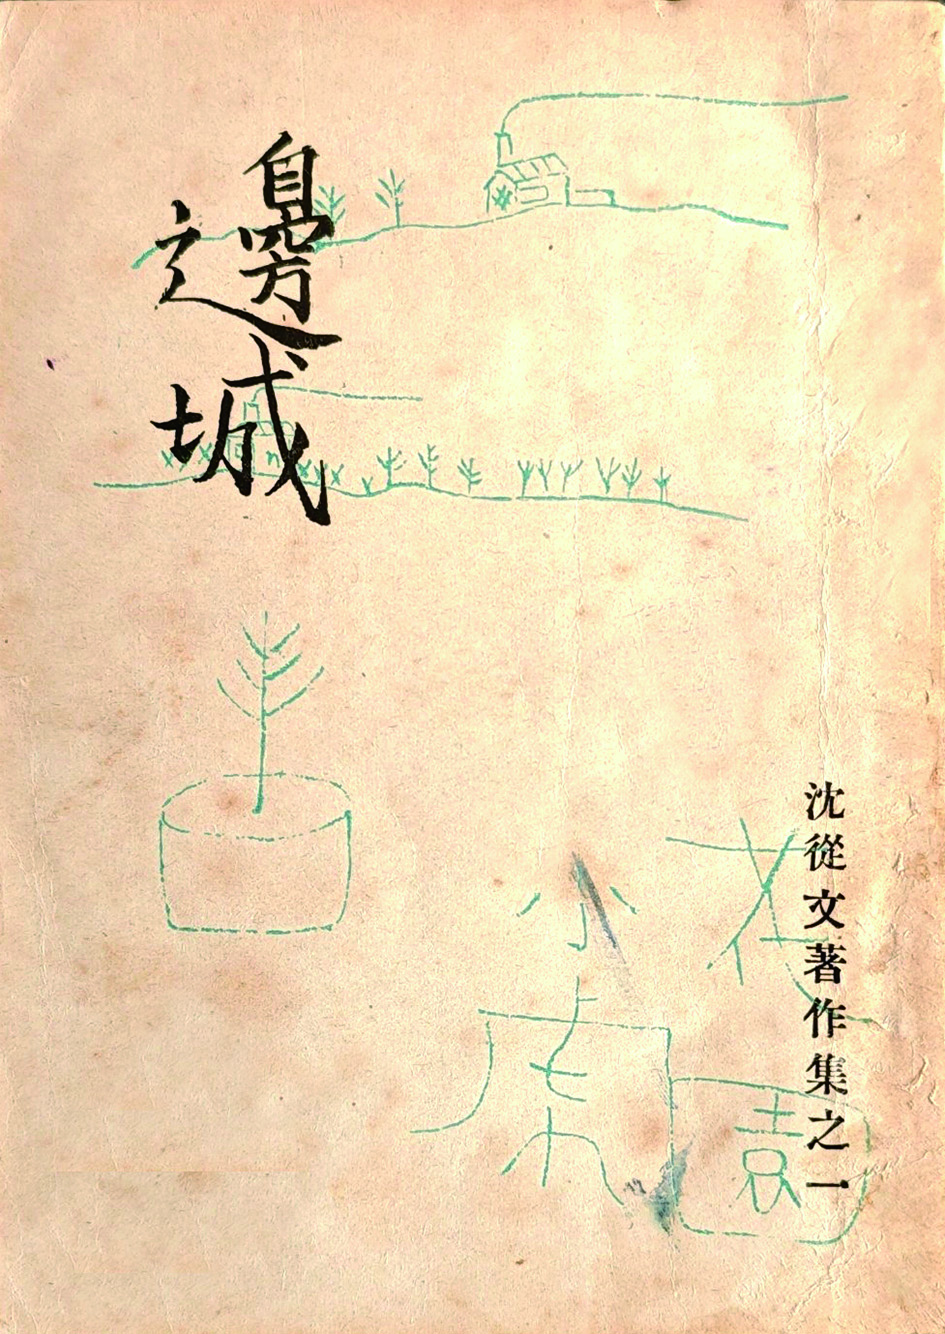 邊城
沈從文著作集之一
園
小